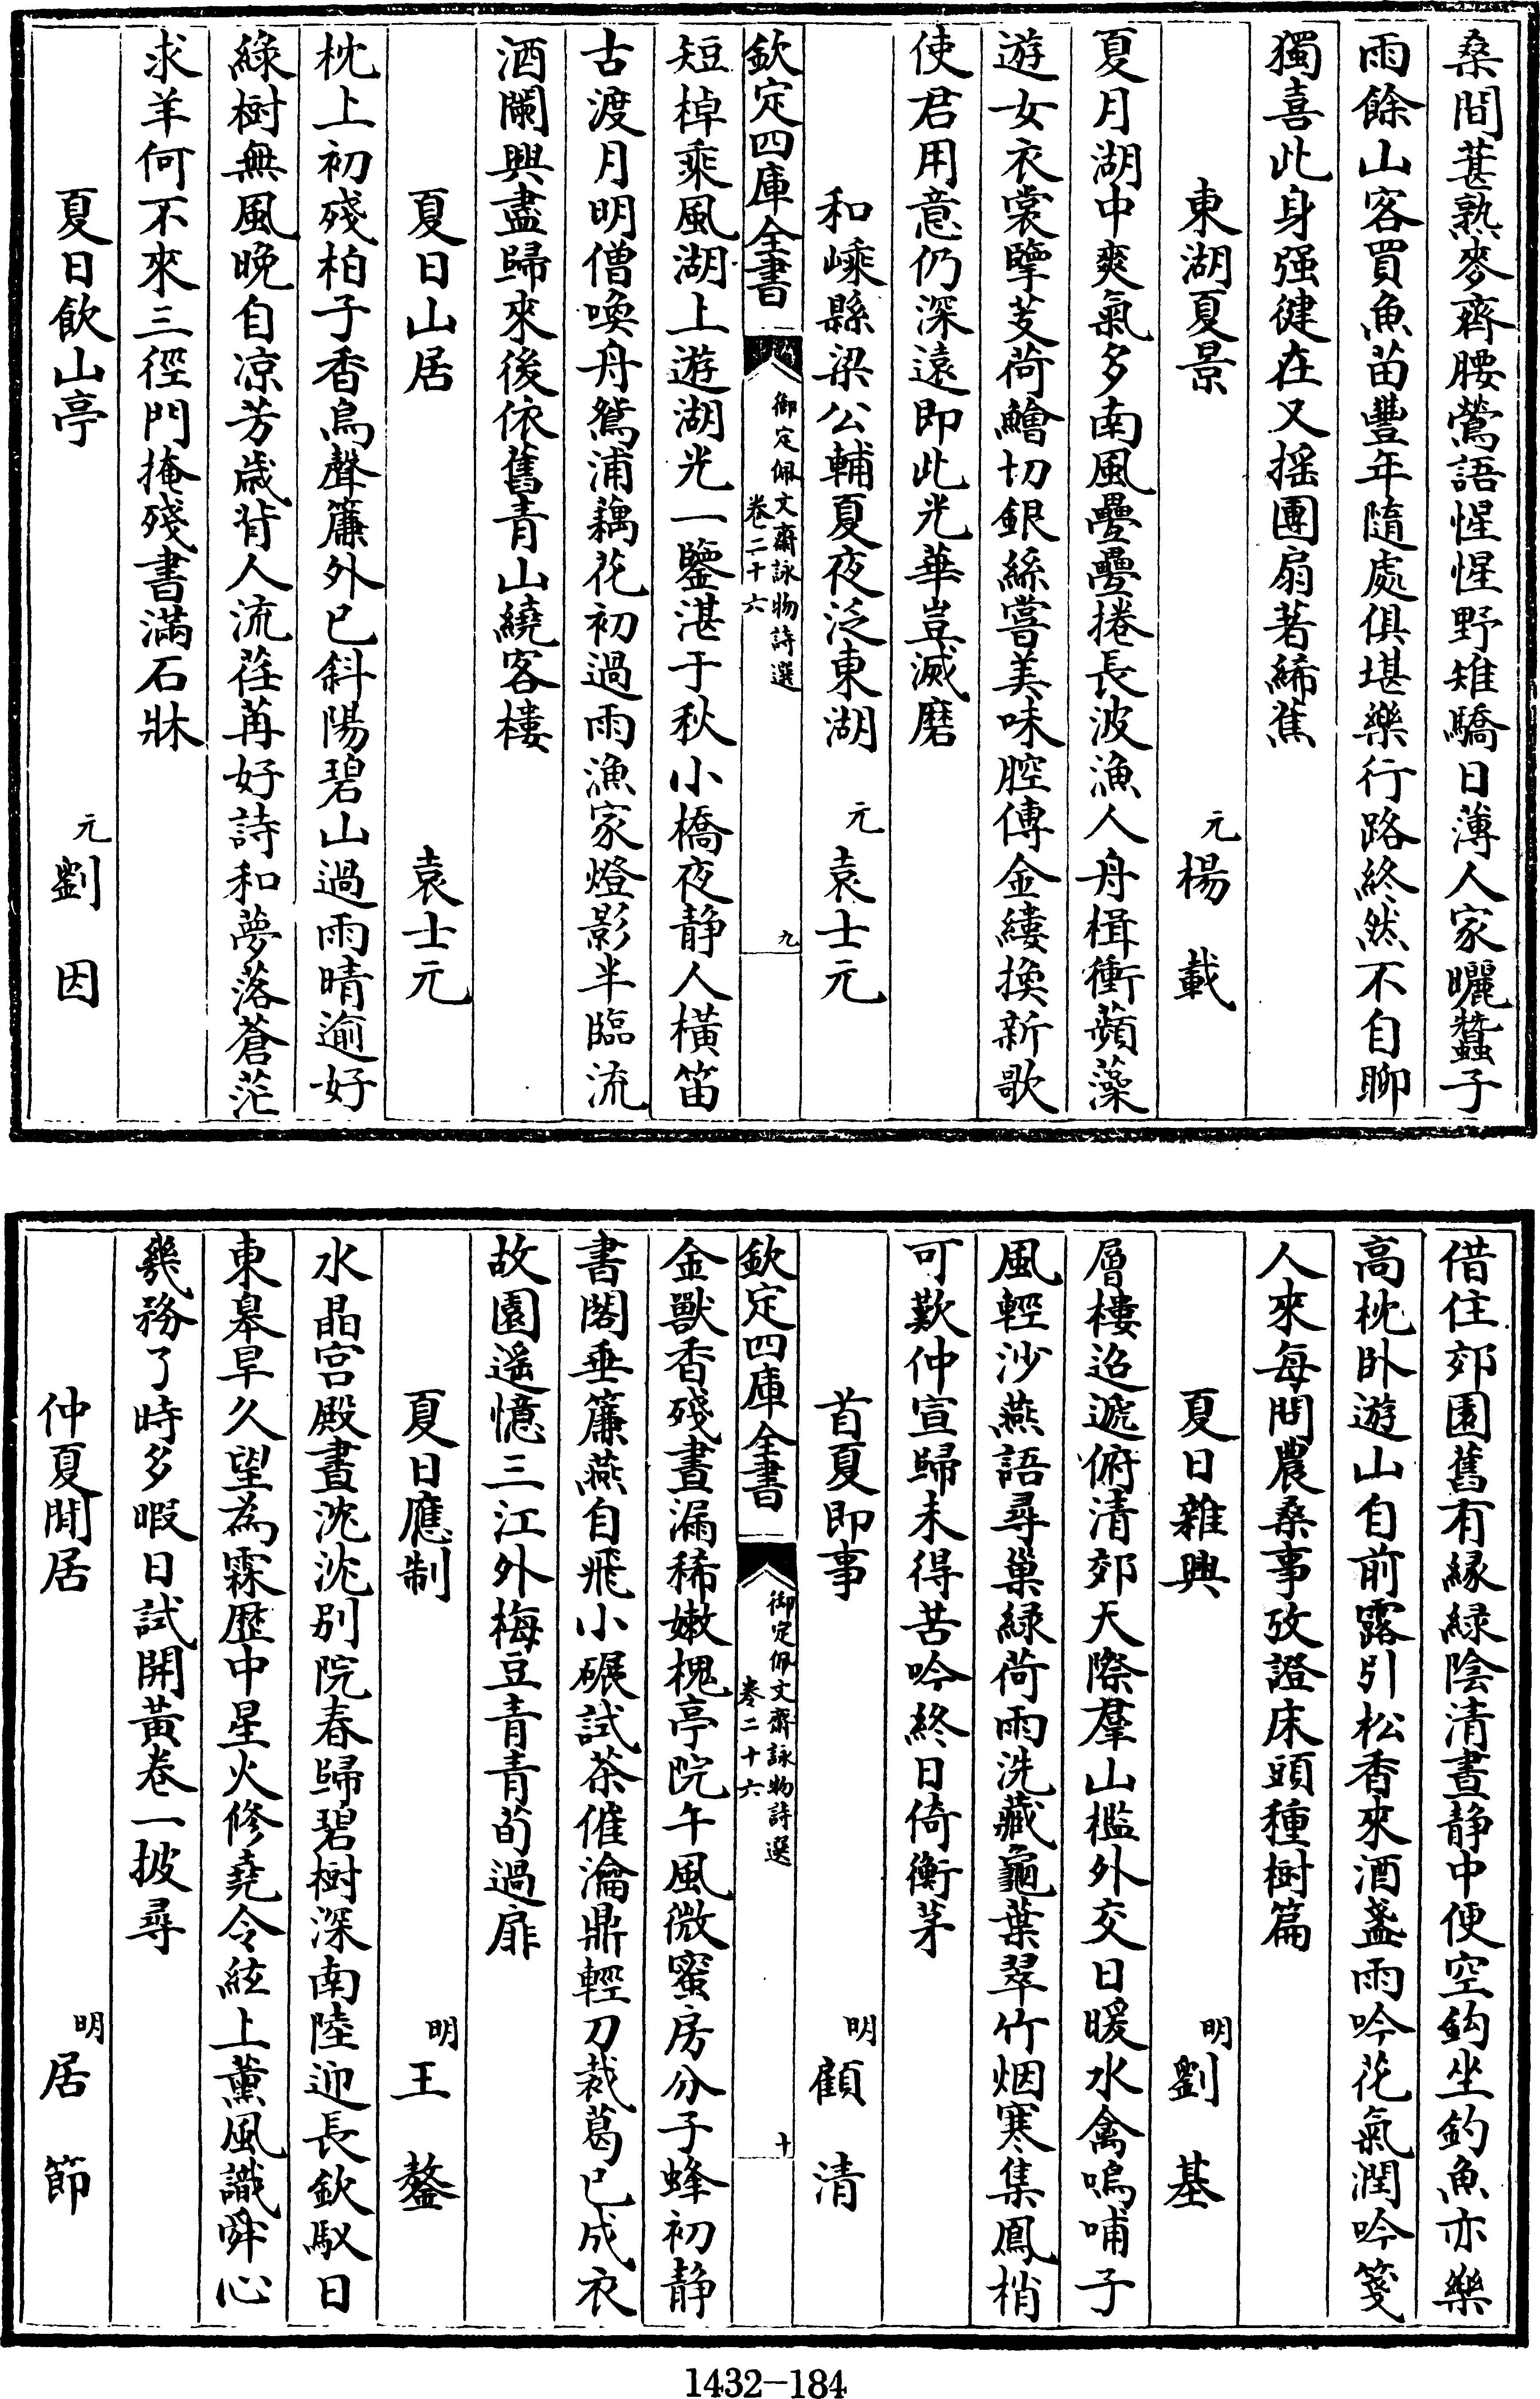 桑間葚熟麥齊腰鶯語惺惺野雉驕日薄人家曬蠶子
雨餘山客買魚苗豐年隨處俱堪樂行路終然不自聊
獨喜此身强健在又摇團扇著絺蕉
東湖夏景
元楊載
夏月湖中爽氣多南風疊疊捲長波漁人舟楫衝蘋藻
遊女衣裳罥芰荷鱠切銀絲嘗美味腔傳金縷換新歌
使君用意仍深遠即此光華豈滅磨
和嵊縣梁公輔夏夜泛東湖
元袁士元
欽定四庫全書
御定佩文齋詠物詩選
卷二十六
九
短棹乘風湖上遊湖光一鑒湛于秋小橋夜静人橫笛
古渡月明僧喚舟鴛浦藕花初過雨漁家燈影半臨流
酒闌興盡歸來後依舊青山繞客樓
夏日山居
袁士元
枕上初殘柏子香鳥聲簾外已斜陽碧山過雨晴逾好
綠樹無風晚自凉芳歲背人流荏苒好詩和夢落蒼茫
求羊何不來三徑門掩殘書滿石牀
夏日飲山亭
元劉因
借住郊園舊有緣綠陰清晝静中便空鈎坐釣魚亦樂
高枕卧遊山自前露引松香來酒盞雨吟花氣潤吟箋
人來每問農桑事攷證床頭種樹篇
夏日雜興
明劉基
層樓迢遞俯清郊天際羣山檻外交日暖水禽鳴哺子
風輕沙燕語尋巢緑荷雨洗藏龜葉翠竹烟寒集鳳梢
可歎仲宣歸未得苦吟終日倚衡茅
首夏即事
明顧清
欽定四庫全書
御定佩文齋詠物詩選
卷二十六
十
金獸香殘晝漏稀嫩槐亭院午風微蜜房分子蜂初静
書閣垂簾燕自飛小碾試茶催瀹鼎輕刀裁葛已成衣
故園遥憶三江外梅豆青青筍過扉
夏日應制
明王鏊
水晶宫殿晝沈沈别院春歸碧樹深南陸迎長欽馭日
東皋旱久望為霖歴中星火修堯令絃上薰風識舜心
幾務了時多暇日試開黃卷一披尋
仲夏閒居
明居節
1432-184